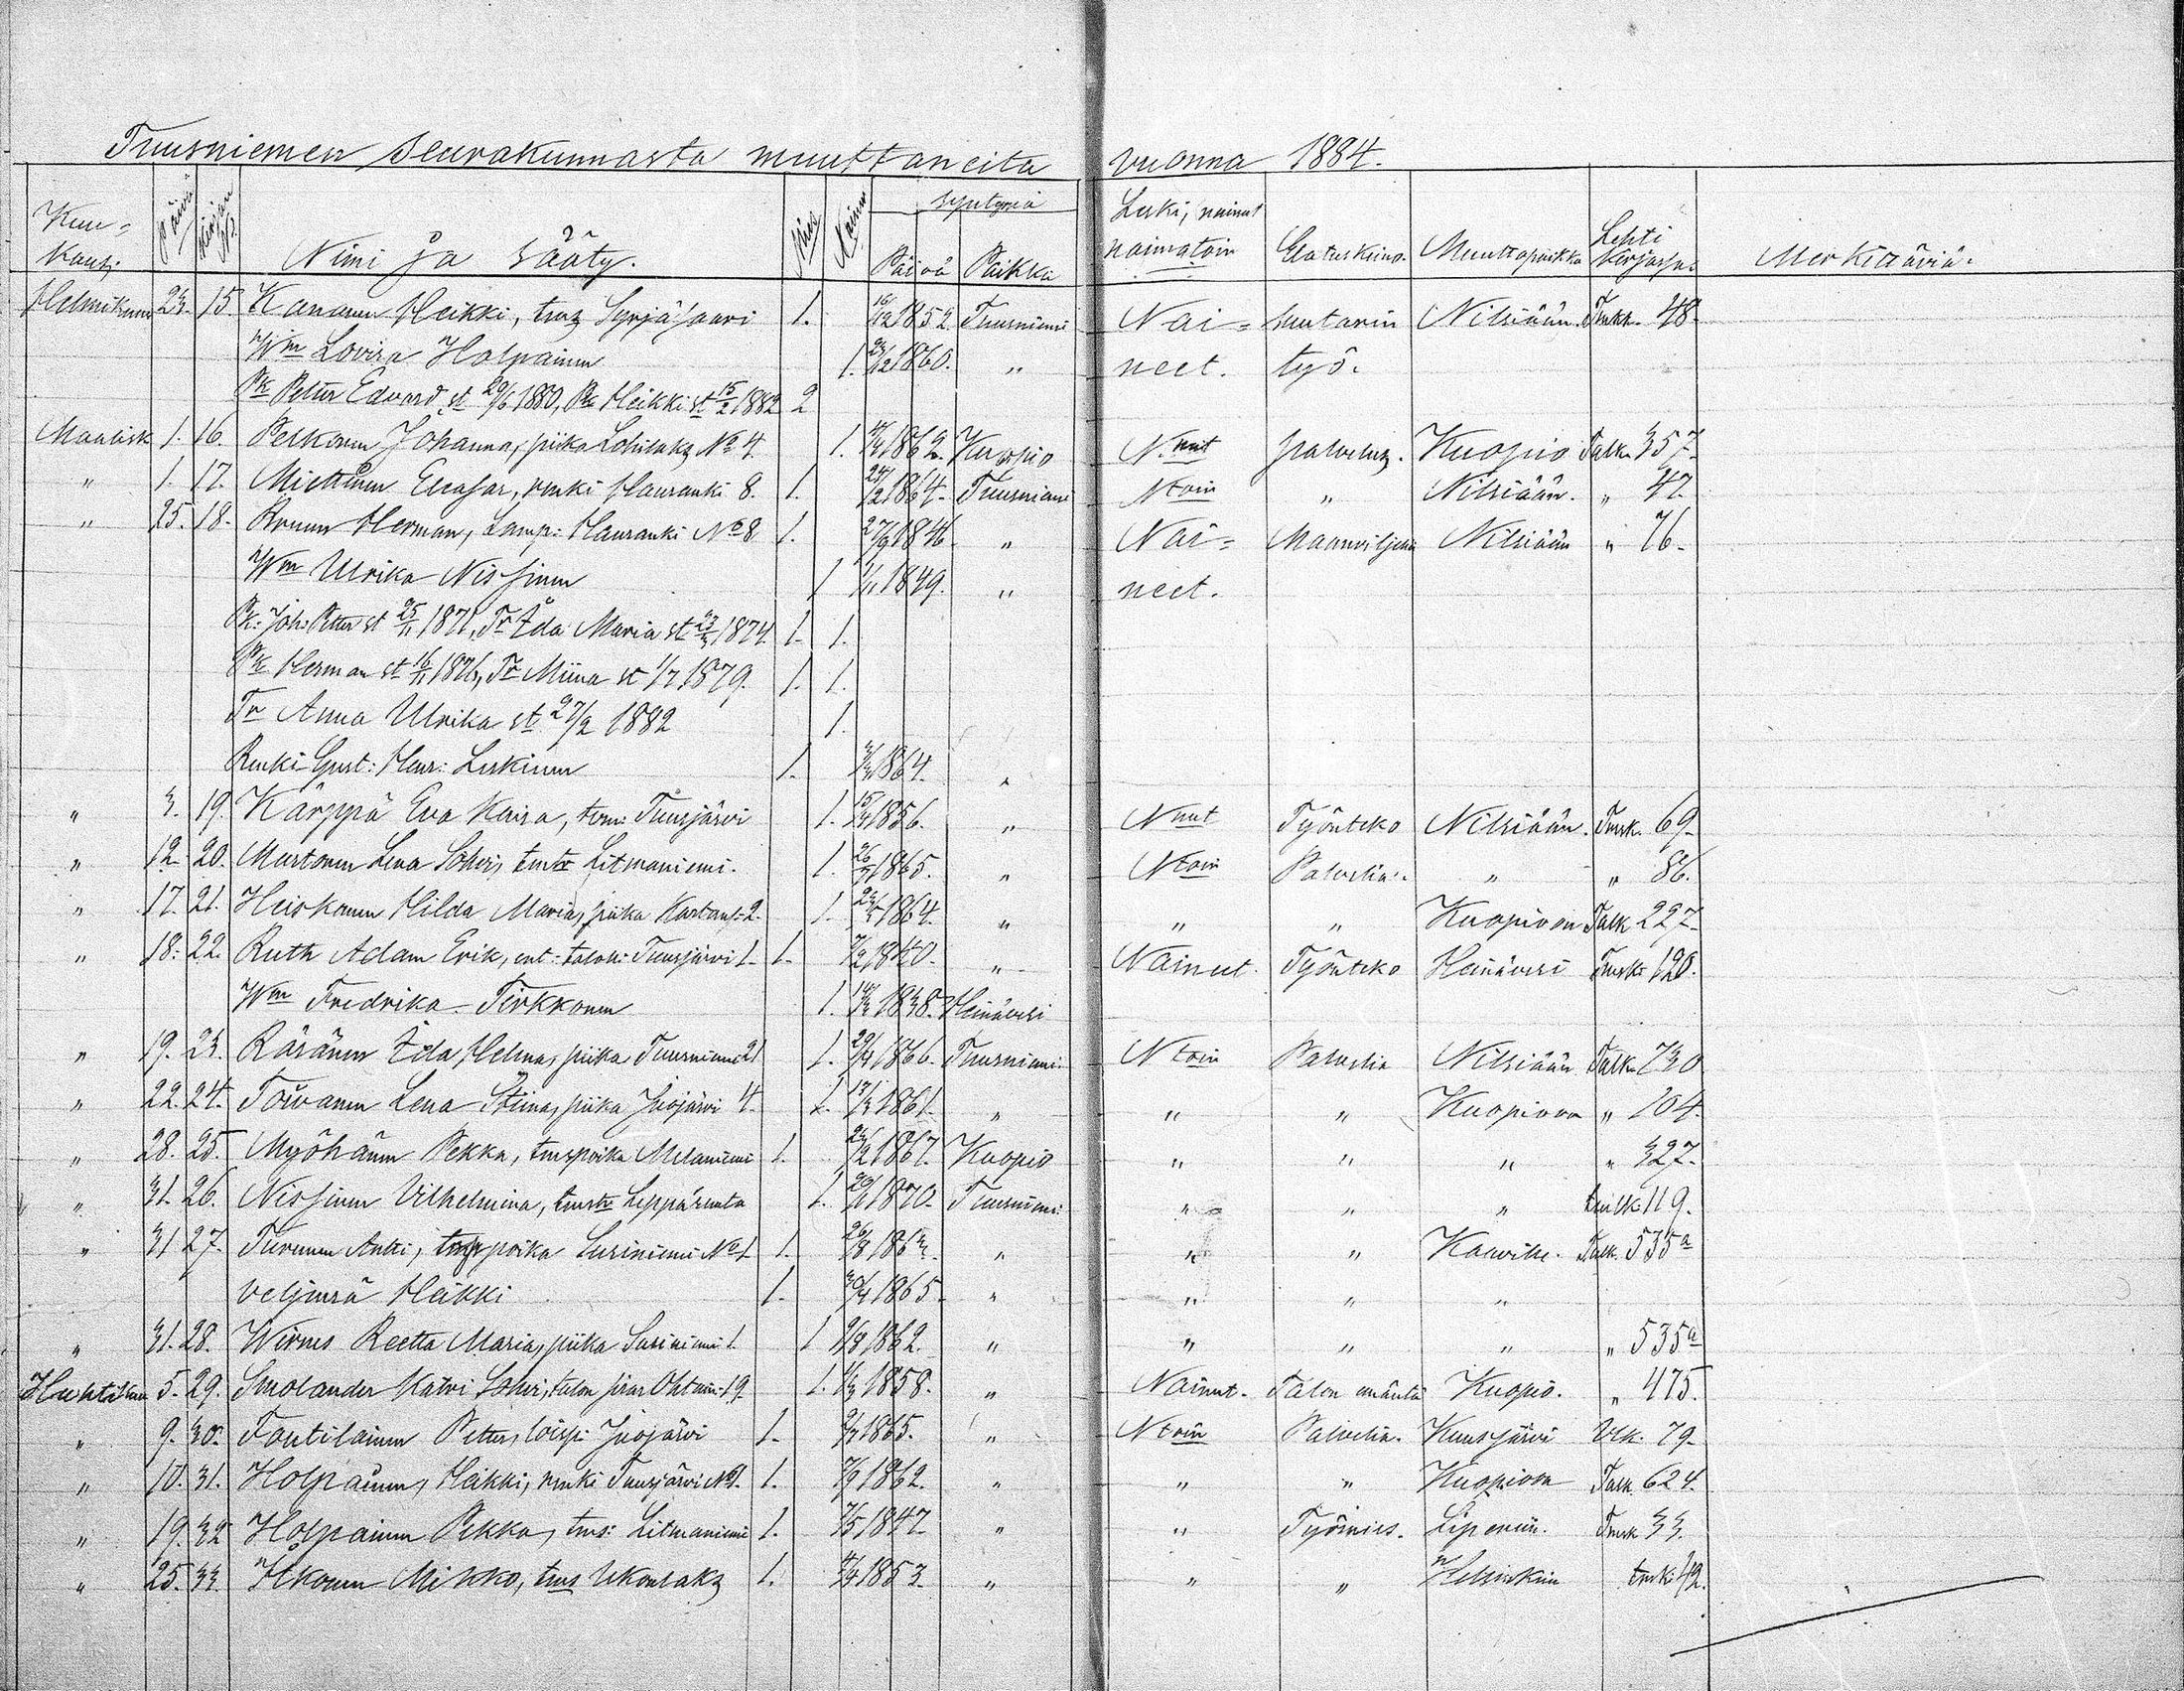 Tuusniemen seurakunnasta muuttaneita vuonna 1884.
Kuu-kausi Päivä Kirjan No. Nimi ja sääty. Mies Nainen syntynyt Päivä Paikka Leski, nainut naimatoin Elatuskeino. Muuttopaikka Lehti kirjassa. Merkittäviä.
Helmikuun 23. 15. Kananen Heikki, Syrjäsaari 1. 16/12 1852. Tuusniemi Nai= suutarin Nilsiään. 48.
Wm Lovisa Holpainen 1. 1860. " neet. työ.
Pk Petter Edvard st 29/6 1880, Pk Heikki st 15/2 1882 2
Maalisk 1. 16. Pekonen Johanna, piika Lohilaks No 4. 1. 1862. Kuopio N.nut palvelus. Kuopio Talk. 357.
" 1. 17. Miettinen Eleasar, renki Hauranki 8. 1. 24/2 1864. Tuusniemi Ntoin " Nilsiään. " 47.
" 25. 18. Bruun Herman, Lamp: Hauranki No 8 1. 27/9 1846 " Nai= Maanviljeliä Nilsiään " 76.
Wm Ulrika Nissinen 1 1/11 1849. " neet.
Pk: Joh: Petter st 25/11 1871, Tr Ida Maria st 23/3 1874 1. 1.
Pk Herman st 16/11 1876, Tr Miina st 1/7 1879. 1. 1.
Tr Anna Ulrika st 27/2 1882 1.
Renki Gust: Henr: Leskinen 1. 1864. "
" 3. 19. Kärppä Eva Kaisa, Tuusjärvi 1. 1856. " Nnut Työnteko Nilsiään. Tmsk. 69.
" 12. 20. Mustonen Lena Sohvi, tmstr Litmaniemi. 1. 26/7 1865. " Ntoin Palvelia. " " 86.
" 17. 21. Heiskonen Hilda Maria, piika 2. 1. 1864. " " " Kuopioon Talk 227.
" 18. 22. Ruth Adam Erik, ent: talok: Tuusjärvi 1. 1. 7/2 1840. " Nainut. Työnteko Heinävesi 120.
Wm Fredrika Tirkkonen 1. 1838. Heinävesi
" 19. 23. Räsänen Ida Helena, piika Tuusniemi 21 1. 29/4 1866. Tuusniemi. Ntoin Palvelia Nilsiään Talk. 730
" 22. 24. Toivanen Lena Stiina, piika Juojärvi 4. 1. 17/3 1861. " " " Kuopioon " 204.
" 28. 25. Myöhänen Pekka, tmspoika Melaniemi 1. 1867. Kuopio " " " " 327.
" 31. 26. Nissinen Vilhelmina, tmstr Leppäranta 1. 1870. Tuusniemi. " " " 119.
" 31 27. Turunen Antti, poika Susiniemi No 1 1. 26/8 1863. " " " Kaaville. Talk. 535a
veljensä Heikki 1. 30/4 1865. " " " "
" 31. 28. Wirnes Reetta Maria, piika Susiniemi 1. 1 1862. " " " " " 535a
Huhtikuu 5. 29. Smolander Katri Sohvi, talon 19. 1. 1858. " Nainut. Talon emäntä Kuopio. " 475.
" 9. 30. Tontilainen Petter, loisp: Juojärvi 1. 1865. " Ntoin Palvelia. Kuusjärvi Vlk. 79.
" 10. 31. Holpainen, Heikki, renki Tuusjärvi No 1. 1. 7/9 1862. " " " Kuopioon Talk 624.
" 19. 32 Holpainen Pekka, tms: Litmaniemi 1. 7/5 1847 " " Työmies. Liperiin. Tmsk 33.
" 25. 33. Itkonen Mikko, tms Ukonlaks 1. 4/4 1853. " " " Helsinkiin 42.